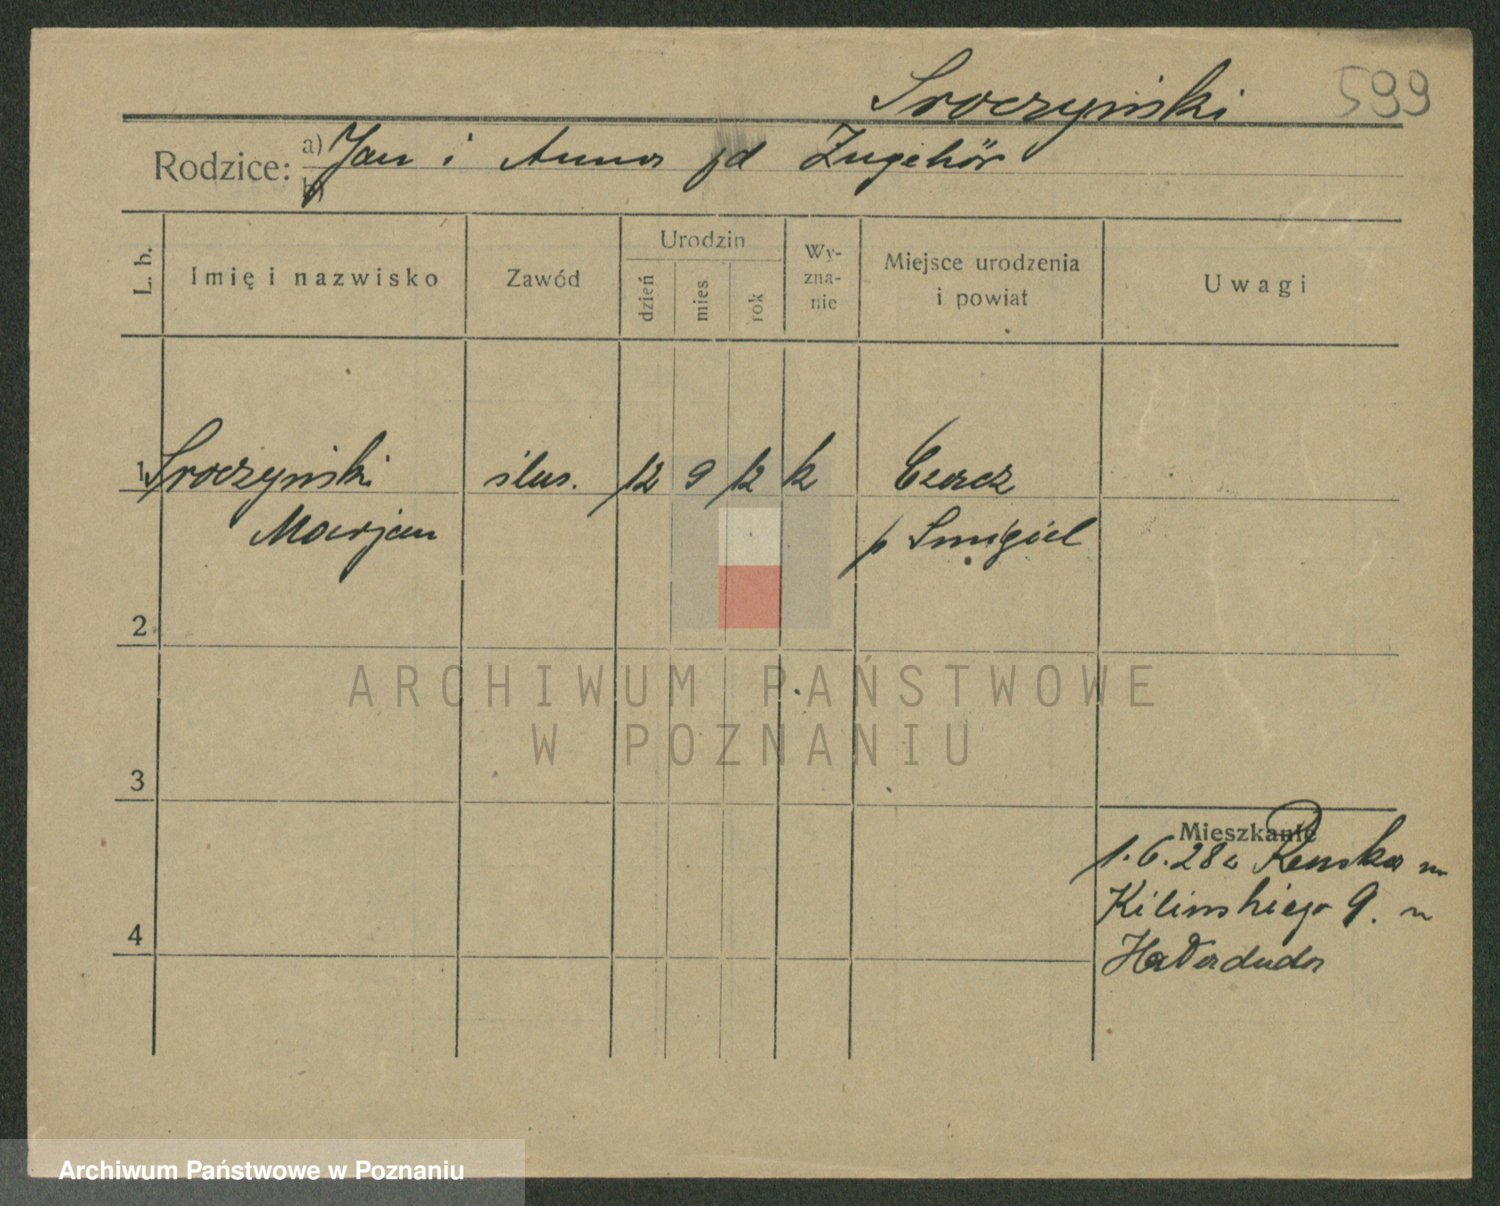 Sroczyński
599
Rodzice: a) Jan i Anna zd Zugehör
b)
L. b. Imię i nazwisko Zawód Urodzin dzień mies rok Wy-zna-nie Miejsce urodzenia i powiat Uwagi
1 Sroczyński ślus. 12 9 12 k Czacz
Marjan p Śmigiel
2
ARCHIWUM PAŃSTWOWE
W POZNANIU
3
Mieszkanie
1.6.28
4 Kilińskiego 9.
Archiwum Państwowe w Poznaniu